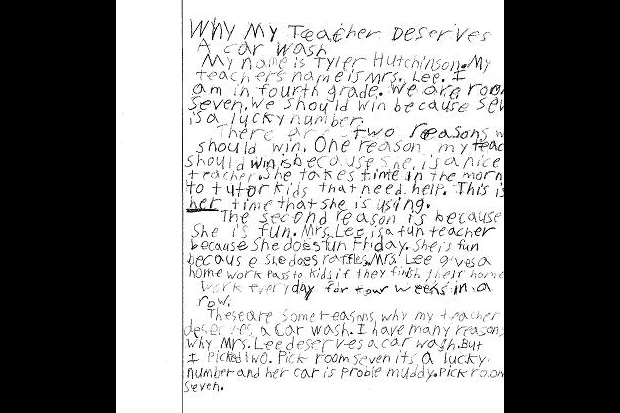 Why My Teacher Deserves
A car wash
My name is Tyler Hutchinson. My
teachers name is Mrs. Lee. I
am in fourth grade. We are room
seven. We should win because sev
is a lucky number.
There are two reasons w
should win. One reason my teac
should win is because she is a nice
teacher. She takes time in the morn
to tutor kids that need help. This is
her time that she is using.
The second reason is because
she is fun. Mrs. Lee is a fun teacher
because she does fun Friday. She is fun
because she does raffles. Mrs. Lee gives a
home work pass to kids if they finish their home
work everyday for four weeks in a
row.
These are some reasons, why my teacher
deserves, a car wash. I have many reasons
why Mrs. Lee deserves a car wash. But
I picked two. Pick room seven its a lucky
number and her car is proble muddy. Pick room
seven.